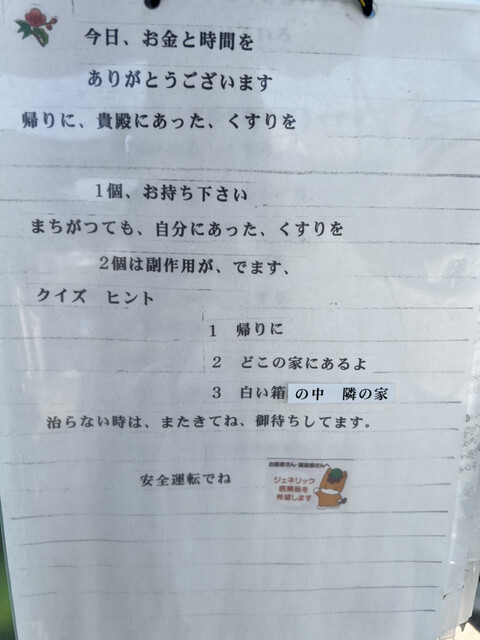 今日、お金と時間を
ありがとうございます
帰りに、貴殿にあった、くすりを
1個、お持ち下さい
まちがつても、自分にあった、くすりを
2個は副作用が、でます、
クイズ　ヒント
1　帰りに
2　どこの家にあるよ
3　白い箱の中　隣の家
治らない時は、またきてね、御待ちしてます。
安全運転でね
お医者さん・薬剤師さんへ
ジェネリック
医薬品を
希望します